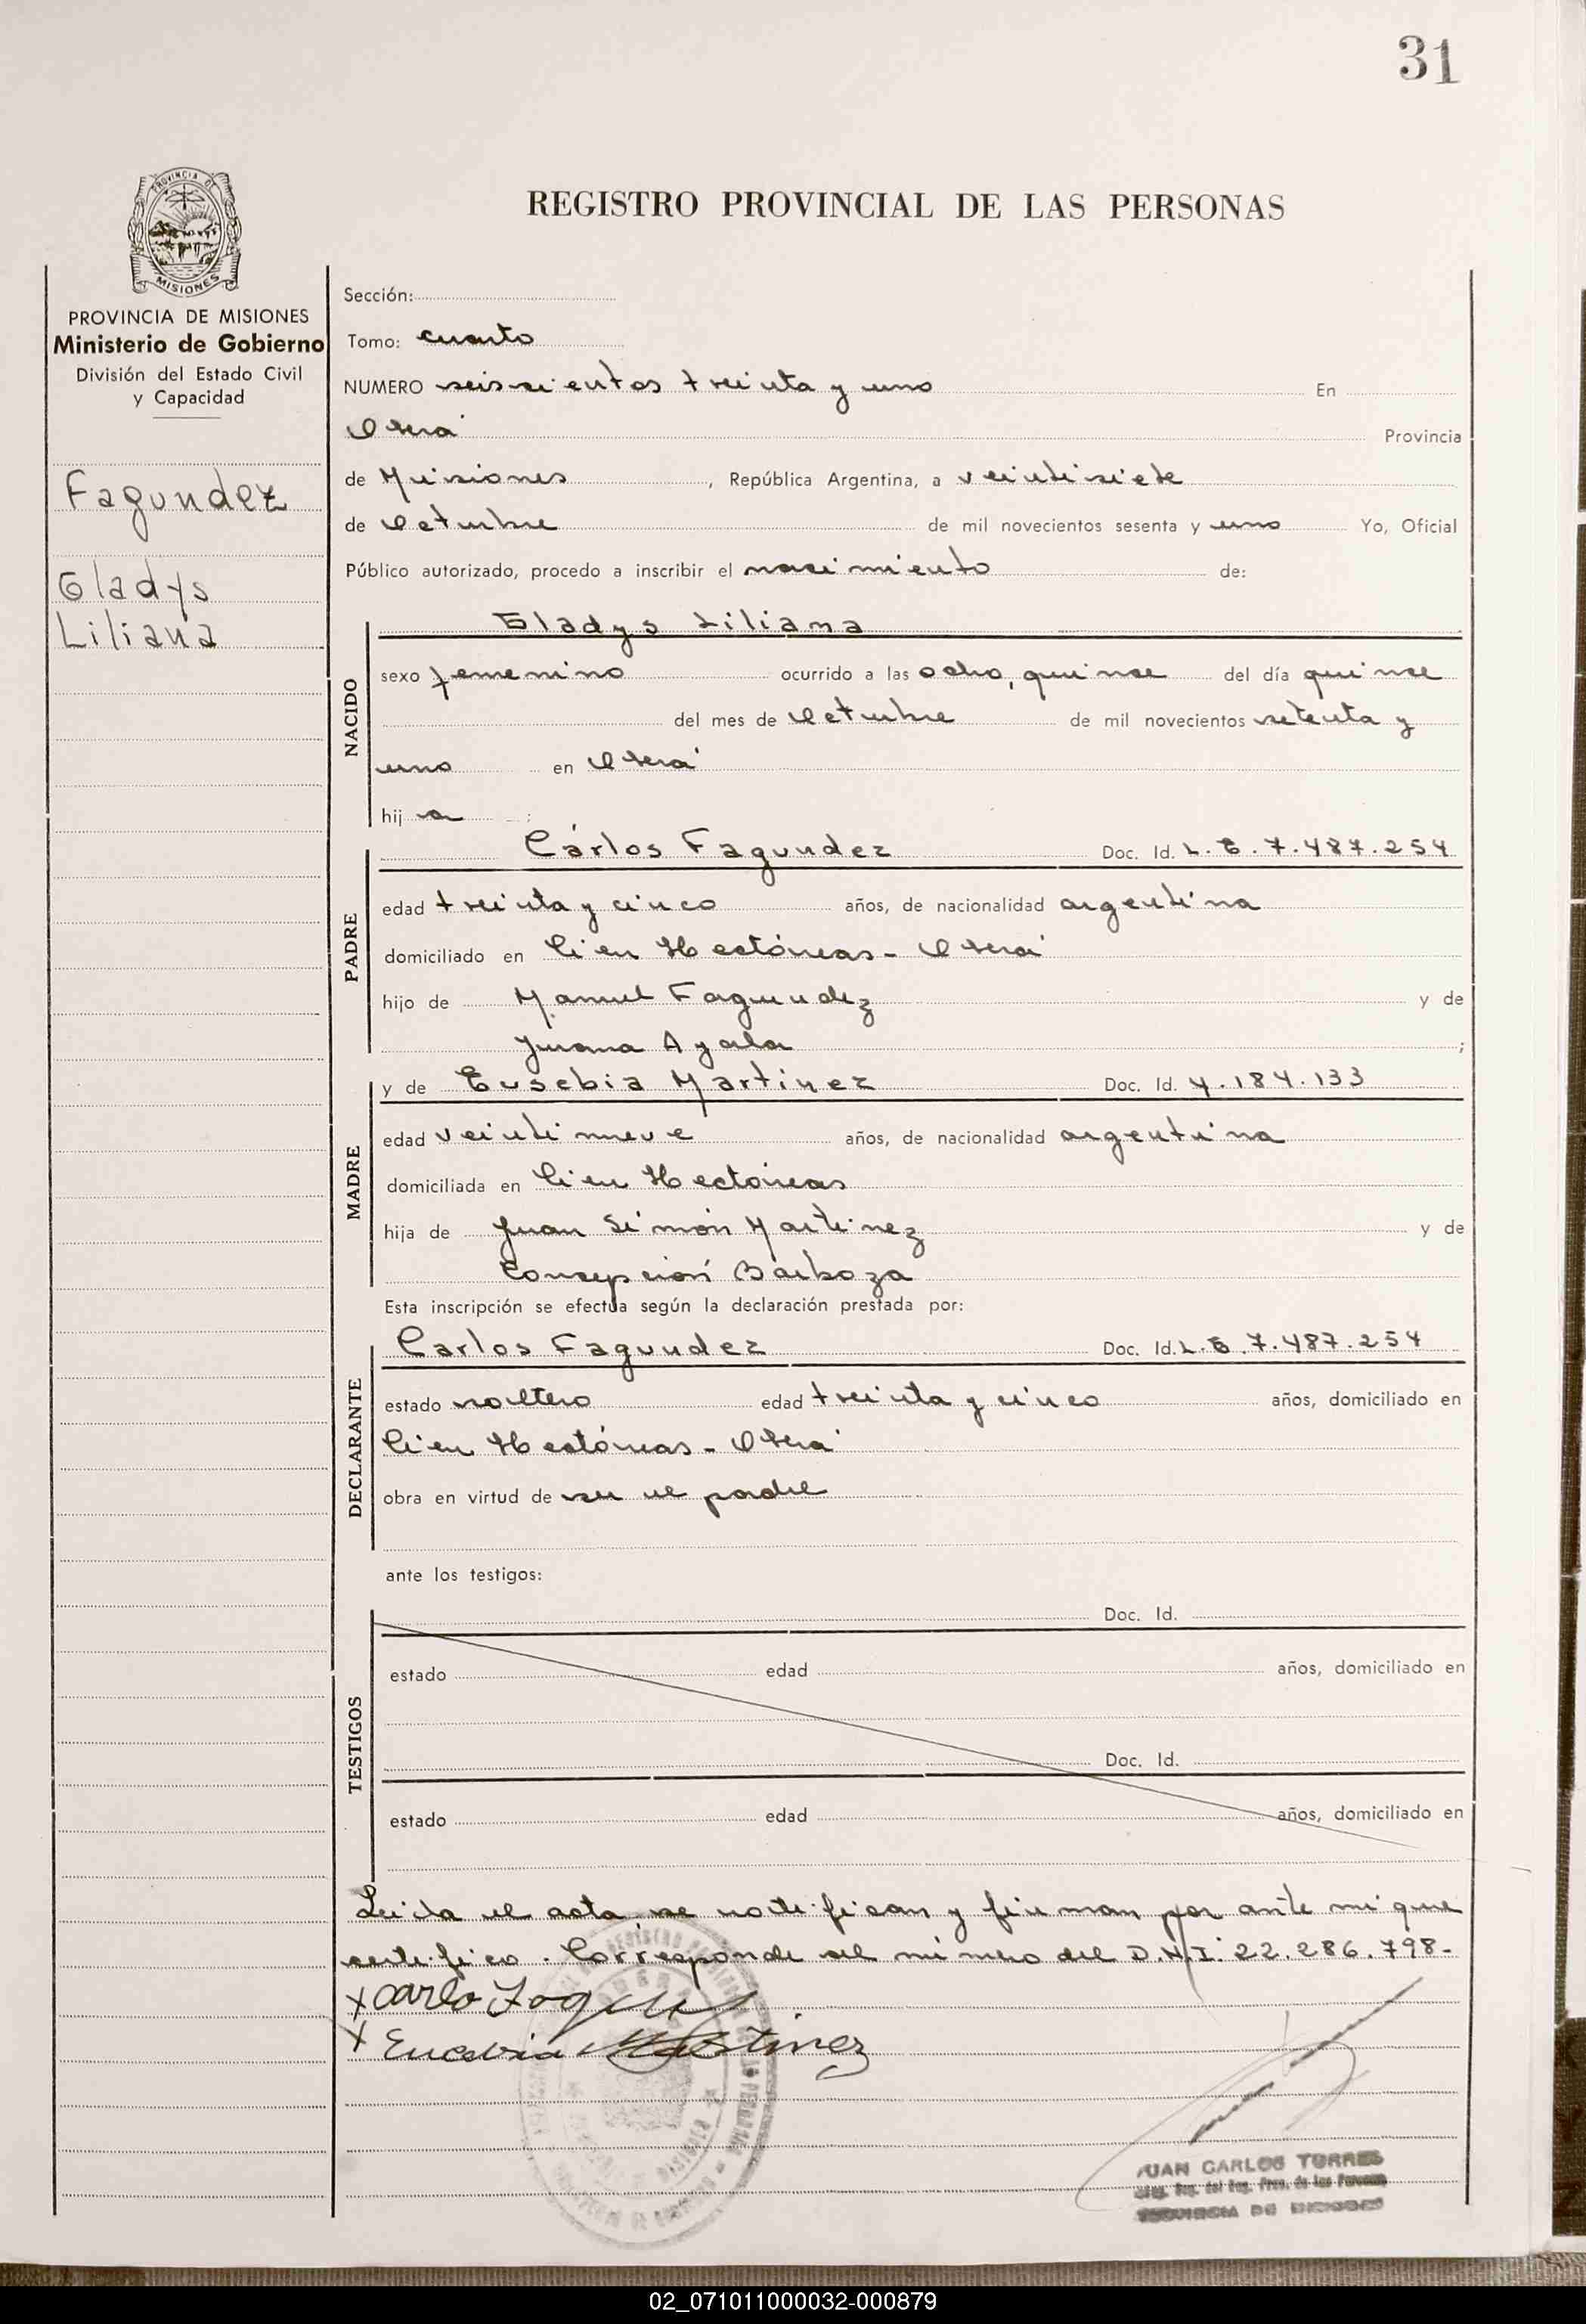 31
PROVINCIA DE
MISIONES
REGISTRO PROVINCIAL DE LAS PERSONAS
PROVINCIA DE MISIONES
Ministerio de Gobierno
División del Estado Civil
y Capacidad
Fagundez
Gladys
Liliana
Sección:
Tomo: cuarto
NUMERO seiscientos treinta y uno En
Oberá Provincia
de Misiones, República Argentina, a veintisiete
de Octubre de mil novecientos sesenta y uno Yo, Oficial
Público autorizado, procedo a inscribir el nacimiento de:
NACIDO
Gladys Liliana
sexo femenino ocurrido a las ocho, quince del día quince
del mes de Octubre de mil novecientos setenta y
uno en Oberá
hij a :
PADRE
Carlos Fagundez Doc. Id. L.E. 7.487.254
edad treinta y cinco años, de nacionalidad argentina
domiciliado en Cien Hectáreas - Oberá
hijo de Manuel Fagundez y de
Juana Ayala ;
MADRE
y de Eusebia Martinez Doc. Id. 4.184.133
edad veintinueve años, de nacionalidad argentina
domiciliada en Cien Hectáreas
hija de Juan Simón Martinez y de
Concepción Barboza
Esta inscripción se efectúa según la declaración prestada por:
DECLARANTE
Carlos Fagundez Doc. Id. L.E. 7.487.254
estado soltero edad treinta y cinco años, domiciliado en
Cien Hectáreas - Oberá
obra en virtud de ser el padre
ante los testigos:
TESTIGOS
Doc. Id.
estado edad años, domiciliado en
Doc. Id.
estado edad años, domiciliado en
Leida el acta, se notifican y firman por ante mi que
certifico. Corresponde al número del D.N.I. 22.286.798-
x Carlo
x Martinez
JUAN CARLOS TORRES
del Reg. Prov. de las Personas
PROVINCIA DE MISIONES
02_071011000032-000879